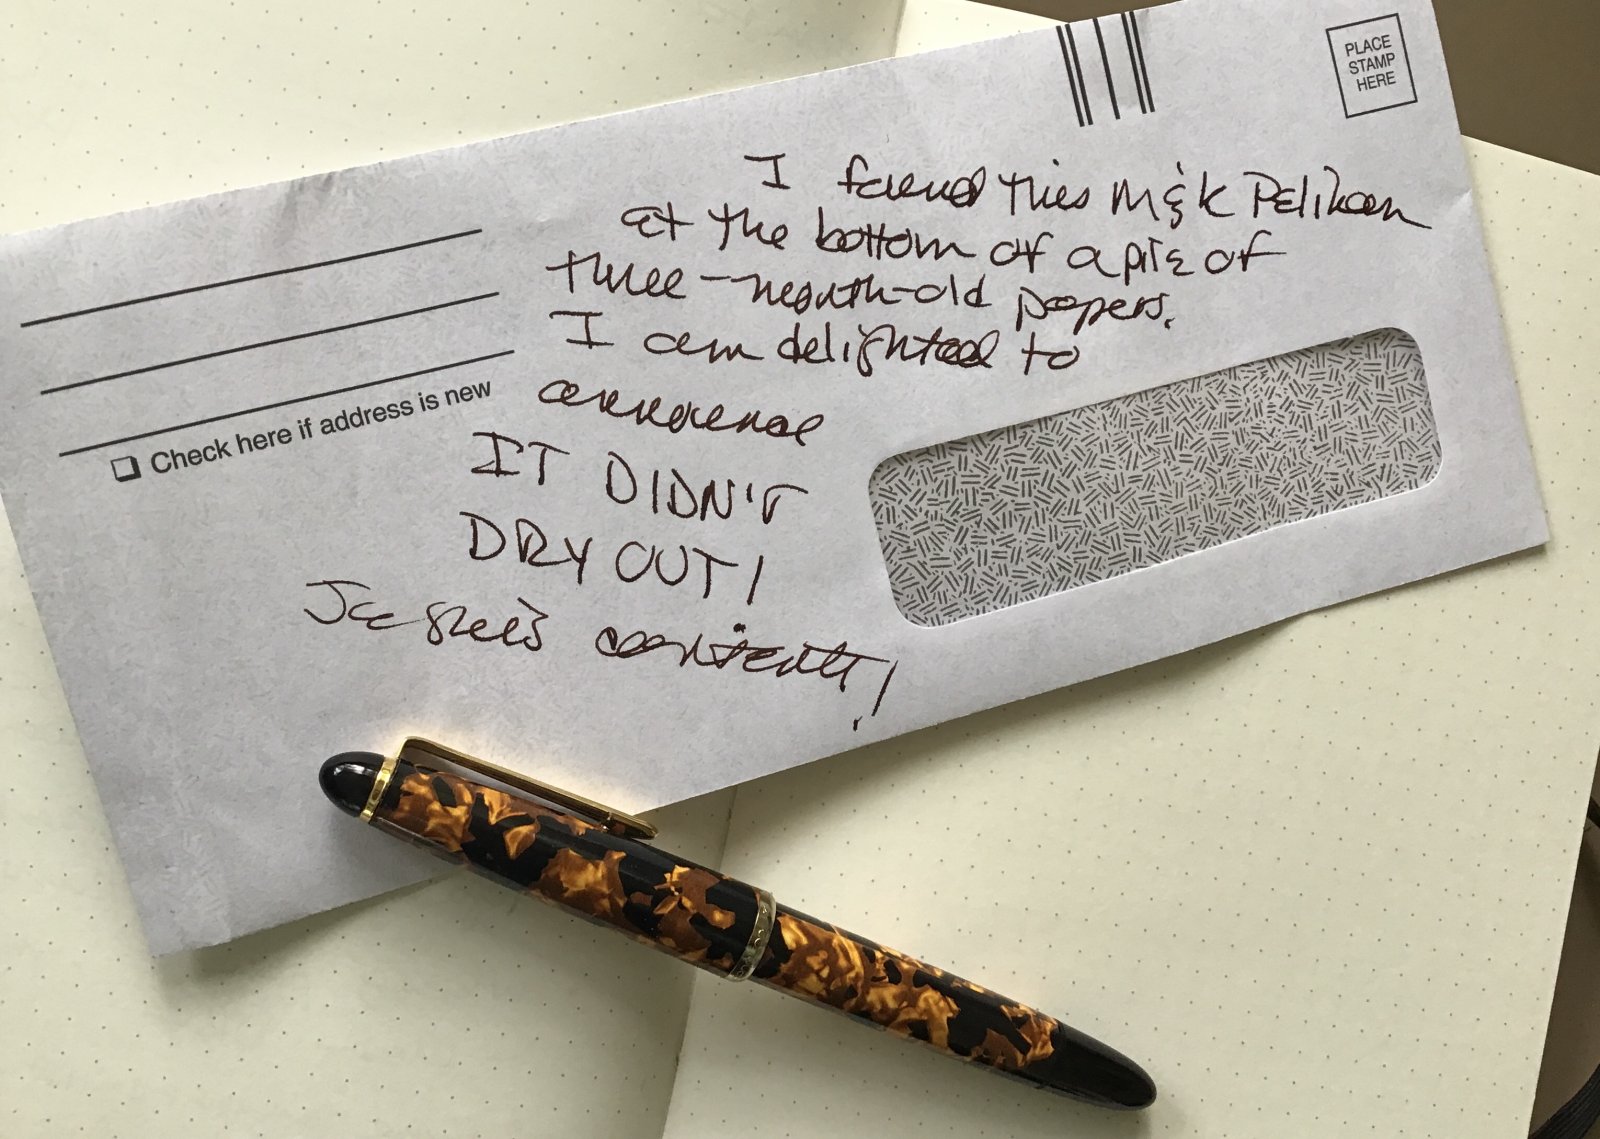 PLACE
STAMP
HERE
I found this M&K Pelikan
at the bottom of a pile of
three-month-old papers.
I am delighted to
announce
IT DIDN'T
DRY OUT!
contents!
Check here if address is new